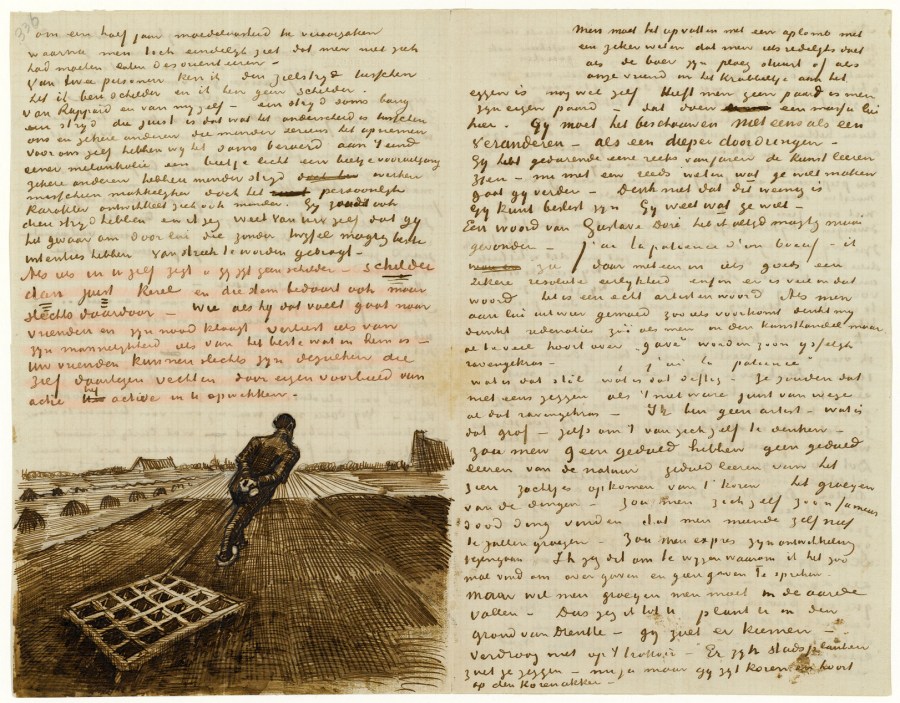 336
om een half jaar moedeloosheid te veroorzaken
waarna men toch eindelijk ziet dat men niet zich
had moeten laten desorienteeren –
Van twee personen ken ik den zielstryd tusschen
het ik ben schilder en ik ben geen schilder.
Van Rappard en van my zelf – een stryd soms bang
een stryd die juist is dat wat het onderscheid is tusschen
ons en zekere anderen die minder serieus het opnemen
voor ons zelf hebben wy 't soms beroerd aan 't eind
eener melankolie een beetje licht een beetje vooruitgang
zekere anderen hebben minder stryd werken
misschien makkelyker doch het persoonlyk
karakter ontwikkelt zich ook minder. Gy zoudt ook
dien stryd hebben en ik zeg weet van uw zelf dat gy
het gevaar om door lui die zonder twyfel magnifieke
intenties hebben van streek te worden gebragt –
Als iets in U zelf zegt „gy zyt geen schilder – schilder
dan juist kerel en die stem bedaart ook maar
slechts daardoor – wie als hy dat voelt gaat naar
vrienden en zyn nood klaagt verliest iets van
zyn mannelykheid iets van het beste wat in hem is –
Uw vrienden kunnen slechts zyn degenen die
zelf daartegen vechten door eigen voorbeeld van
actie hy active in U opwekken –
Men moet het opvatten met een aplomb met
een zeker weten dat men iets redelyks doet
als de boer zyn ploeg stuurt of als
onze vriend in het krabbeltje die aan het
eggen is nog wel zelf Heeft men geen paard is men
zyn eigen paard – dat doen een massa lui
hier. Gy moet het beschouwen niet eens als een
veranderen – als een dieper doordringen –
Gy hebt gedurende eene reeks van jaren de kunst leeren
zien – nu met een reeds weten wat ge wilt maken
gaat gy verder – Denk niet dat dit weinig is
Gy kunt beslist zyn Gy weet wat ge wilt –
Een woord van Gustave Doré heb ik altyd magtig mooi
gevonden – j'ai la patience d'un boeuf – ik
zie daar meteen in iets goeds een
zekere resolute eerlykheid enfin er is veel in dat
woord het is een echt artistenwoord Als men
aan lui uit wier gemoed zoo iets voortkomt denkt my
dunkt redenaties zoo als men in den kunsthandel maar
al te veel hoort over „gave" worden zoo'n yselyk
ravengekras – „j'ai la patience"
wat is dat stil wat is dat deftig – Ze zouden dat
niet eens zeggen als 't niet ware juist van wege
al dat ravengekras – Ik ben geen artist – wat is
dat grof – zelfs om 't van zich zelf te denken –
zou men geen geduld hebben geen geduld
leeren van de natuur geduld leeren van het
zien zachtjes opkomen van 't koren het groeyen
van de dingen – zou men zich zelf zoo'n fameus
dood ding vinden dat men meende zelf niet
te zullen groeyen – Zou men expres zyn ontwikkeling
tegengaan – Ik zeg dit om te wyzen waarom ik het zoo
mal vind om over gaven en geen gaven te spreken –
maar wil men groeyen men moet in de aarde
vallen – Dus zeg ik tot U plant U in den
grond van Drenthe – gy zult er kiemen –
Verdroog niet op 't trottoir – Er zyn stadsplanten
zult ge zeggen – nu ja maar gy zyt koren en hoort
op den korenakker –